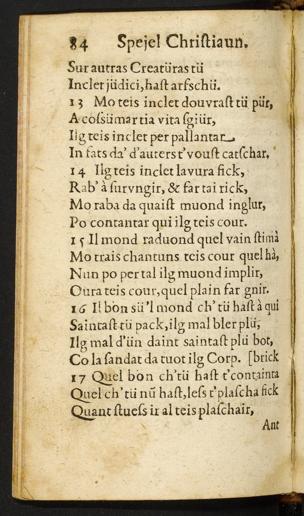 84 Spejel Chriſtiaun.
Sur autras Creatüras tü
Inclet jüdici, haſt arfschü.
13 Mo teis inclet douvraſt tü pür,
A coſsümar tia vita ſgiür,
Ilg teis inclet per pallantar
In fats da' d'auters t'vouſt catſchar.
14 Ilg teis inclet lavura fick,
Rab' à ſurvngir, & far tai rick,
Mo raba da quaiſt muond inglur,
Po contantar qui ilg teis cour.
15 Il mond raduond quel vain ſtimà
Mo trais chantuns teis cour quel hà,
Nun po per tal ilg muond implir,
Oura teis cour, quel plain far gnir.
16 Il bön sü 'l mond ch'tü haſt à qui
Saintaſt tü pack, ilg mal bler plü,
Ilg mal d'ün daint saintaſt plü bot,
Co la ſandat da tuot ilg Corp. [brick
17 Quel bön ch'tü haſt t'containta
Quel ch'tü nü haſt, leſs t'plaſcha fick
Quant ſtueſs ir al teis plaſchair,
Ant